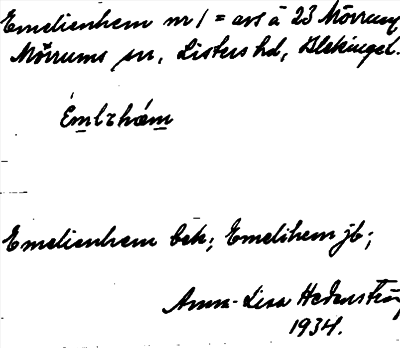 Emelienhem nr 1 = avs å 23 Mörrum
Mörrums sn, Listers hd, Blekinge l.
Émlzhǽm
Emelienhem bek; Emelihem jb;
Anna-Lisa Hedenströ
1934.